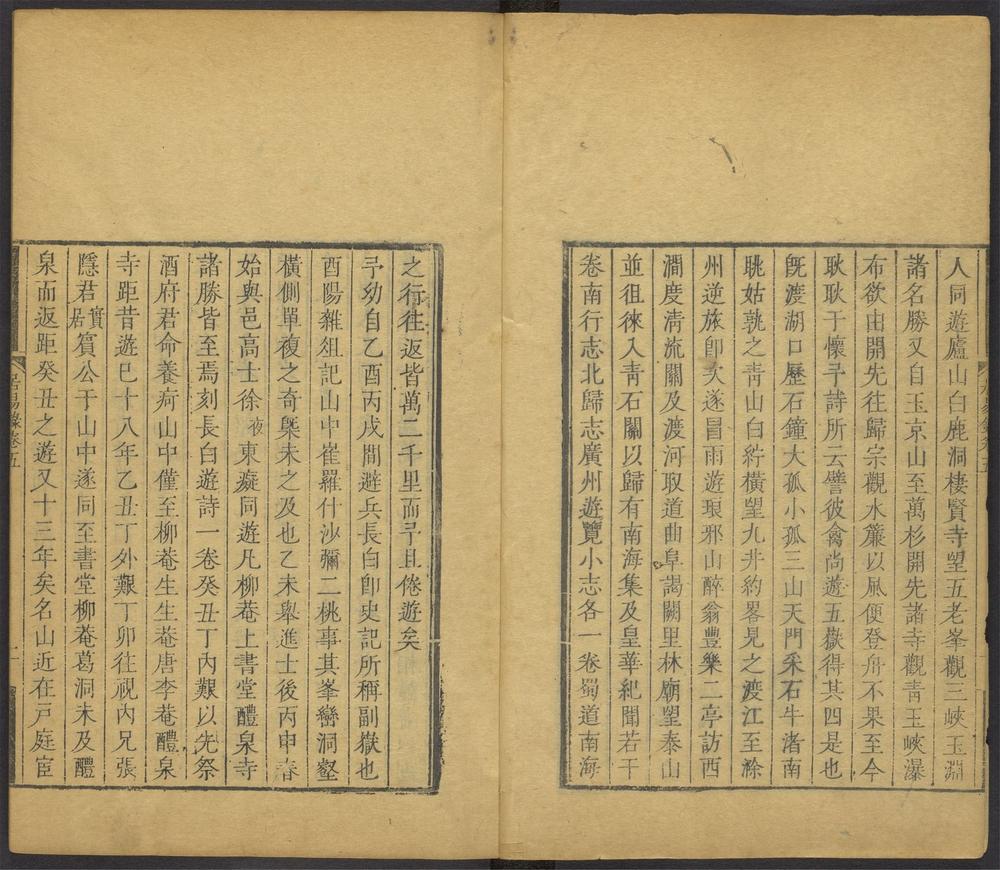 人同遊廬山白鹿洞棲賢寺望五老峯觀三峽玉淵
諸名勝又自玉京山至萬杉開先諸寺觀青玉峽瀑
布欲由開先往歸宗觀水簾以風便登舟不果至今
耿耿于懷予詩所云譬彼禽尚遊五嶽得其四是也
旣渡湖口歷石鐘大孤小孤三山天門采石牛渚南
眺姑孰之青山白紵橫望九井約畧見之渡江至滁
州逆旅卽次遂冒雨遊琅邪山醉翁豐樂二亭訪西
澗度清流關及渡河取道曲阜謁闕里林廟望泰山
並徂徠入青石關以歸有南海集及皇華紀聞若干
卷南行志北歸志廣州遊覽小志各一卷蜀道南海
之行往返皆萬二千里而予且倦遊矣
予幼自乙酉丙戌間避兵長白卽史記所稱副嶽也
酉陽雜俎記山中崔羅什沙彌二桃事其峯巒洞壑
橫側單複之奇槩未之及也乙未舉進士後丙申春
始與邑高士徐夜東癡同遊凡柳菴上書堂醴泉寺
諸勝皆至焉刻長白遊詩一卷癸丑丁內艱以先祭
酒府君命養疴山中僅至柳菴生生菴唐李菴醴泉
寺距昔遊已十八年乙丑丁外艱丁卯往視內兄張
隱君實居賓公于山中遂同至書堂柳菴葛洞未及醴
泉而返距癸丑之遊又十三年矣名山近在戸庭宦
居易錄卷五